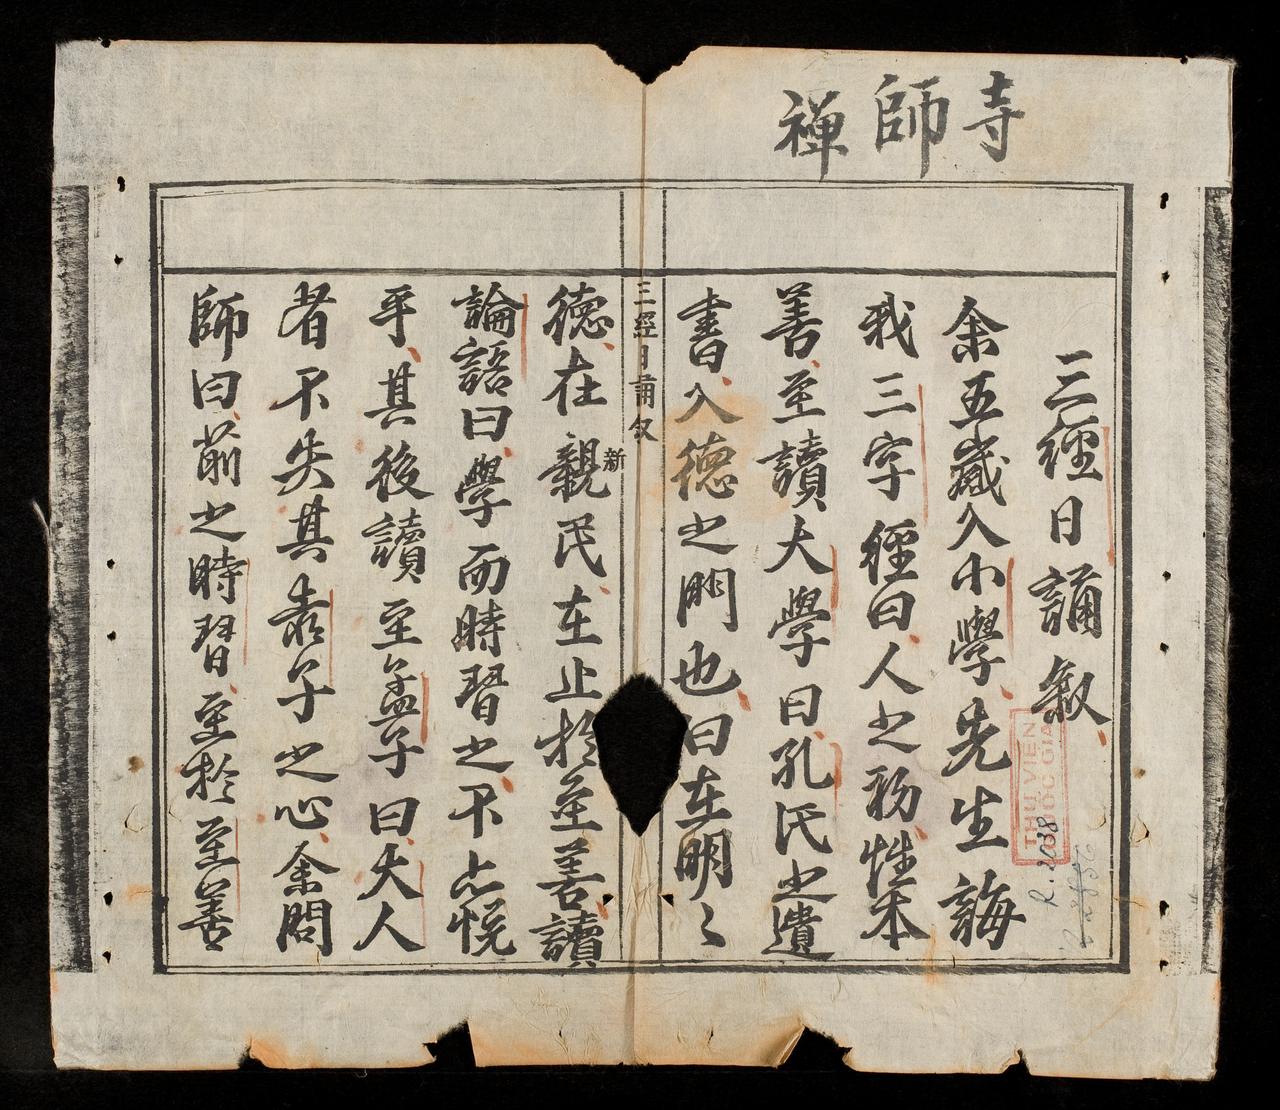 寺師禪
三經日誦叙
余五歲入小學先生誨
我三字經曰人之初性本
善至讀大學曰孔氏之遺
書入德之門也曰在明〻
三經日誦叙
德在親民在止於至善讀
新
論語曰學而時習之不亦悅
乎其後讀至孟子曰大人
者不失其赤子之心余問
師曰前之時習至於至善
THƯ VIỆN
QUỐC GIA
R. 2038